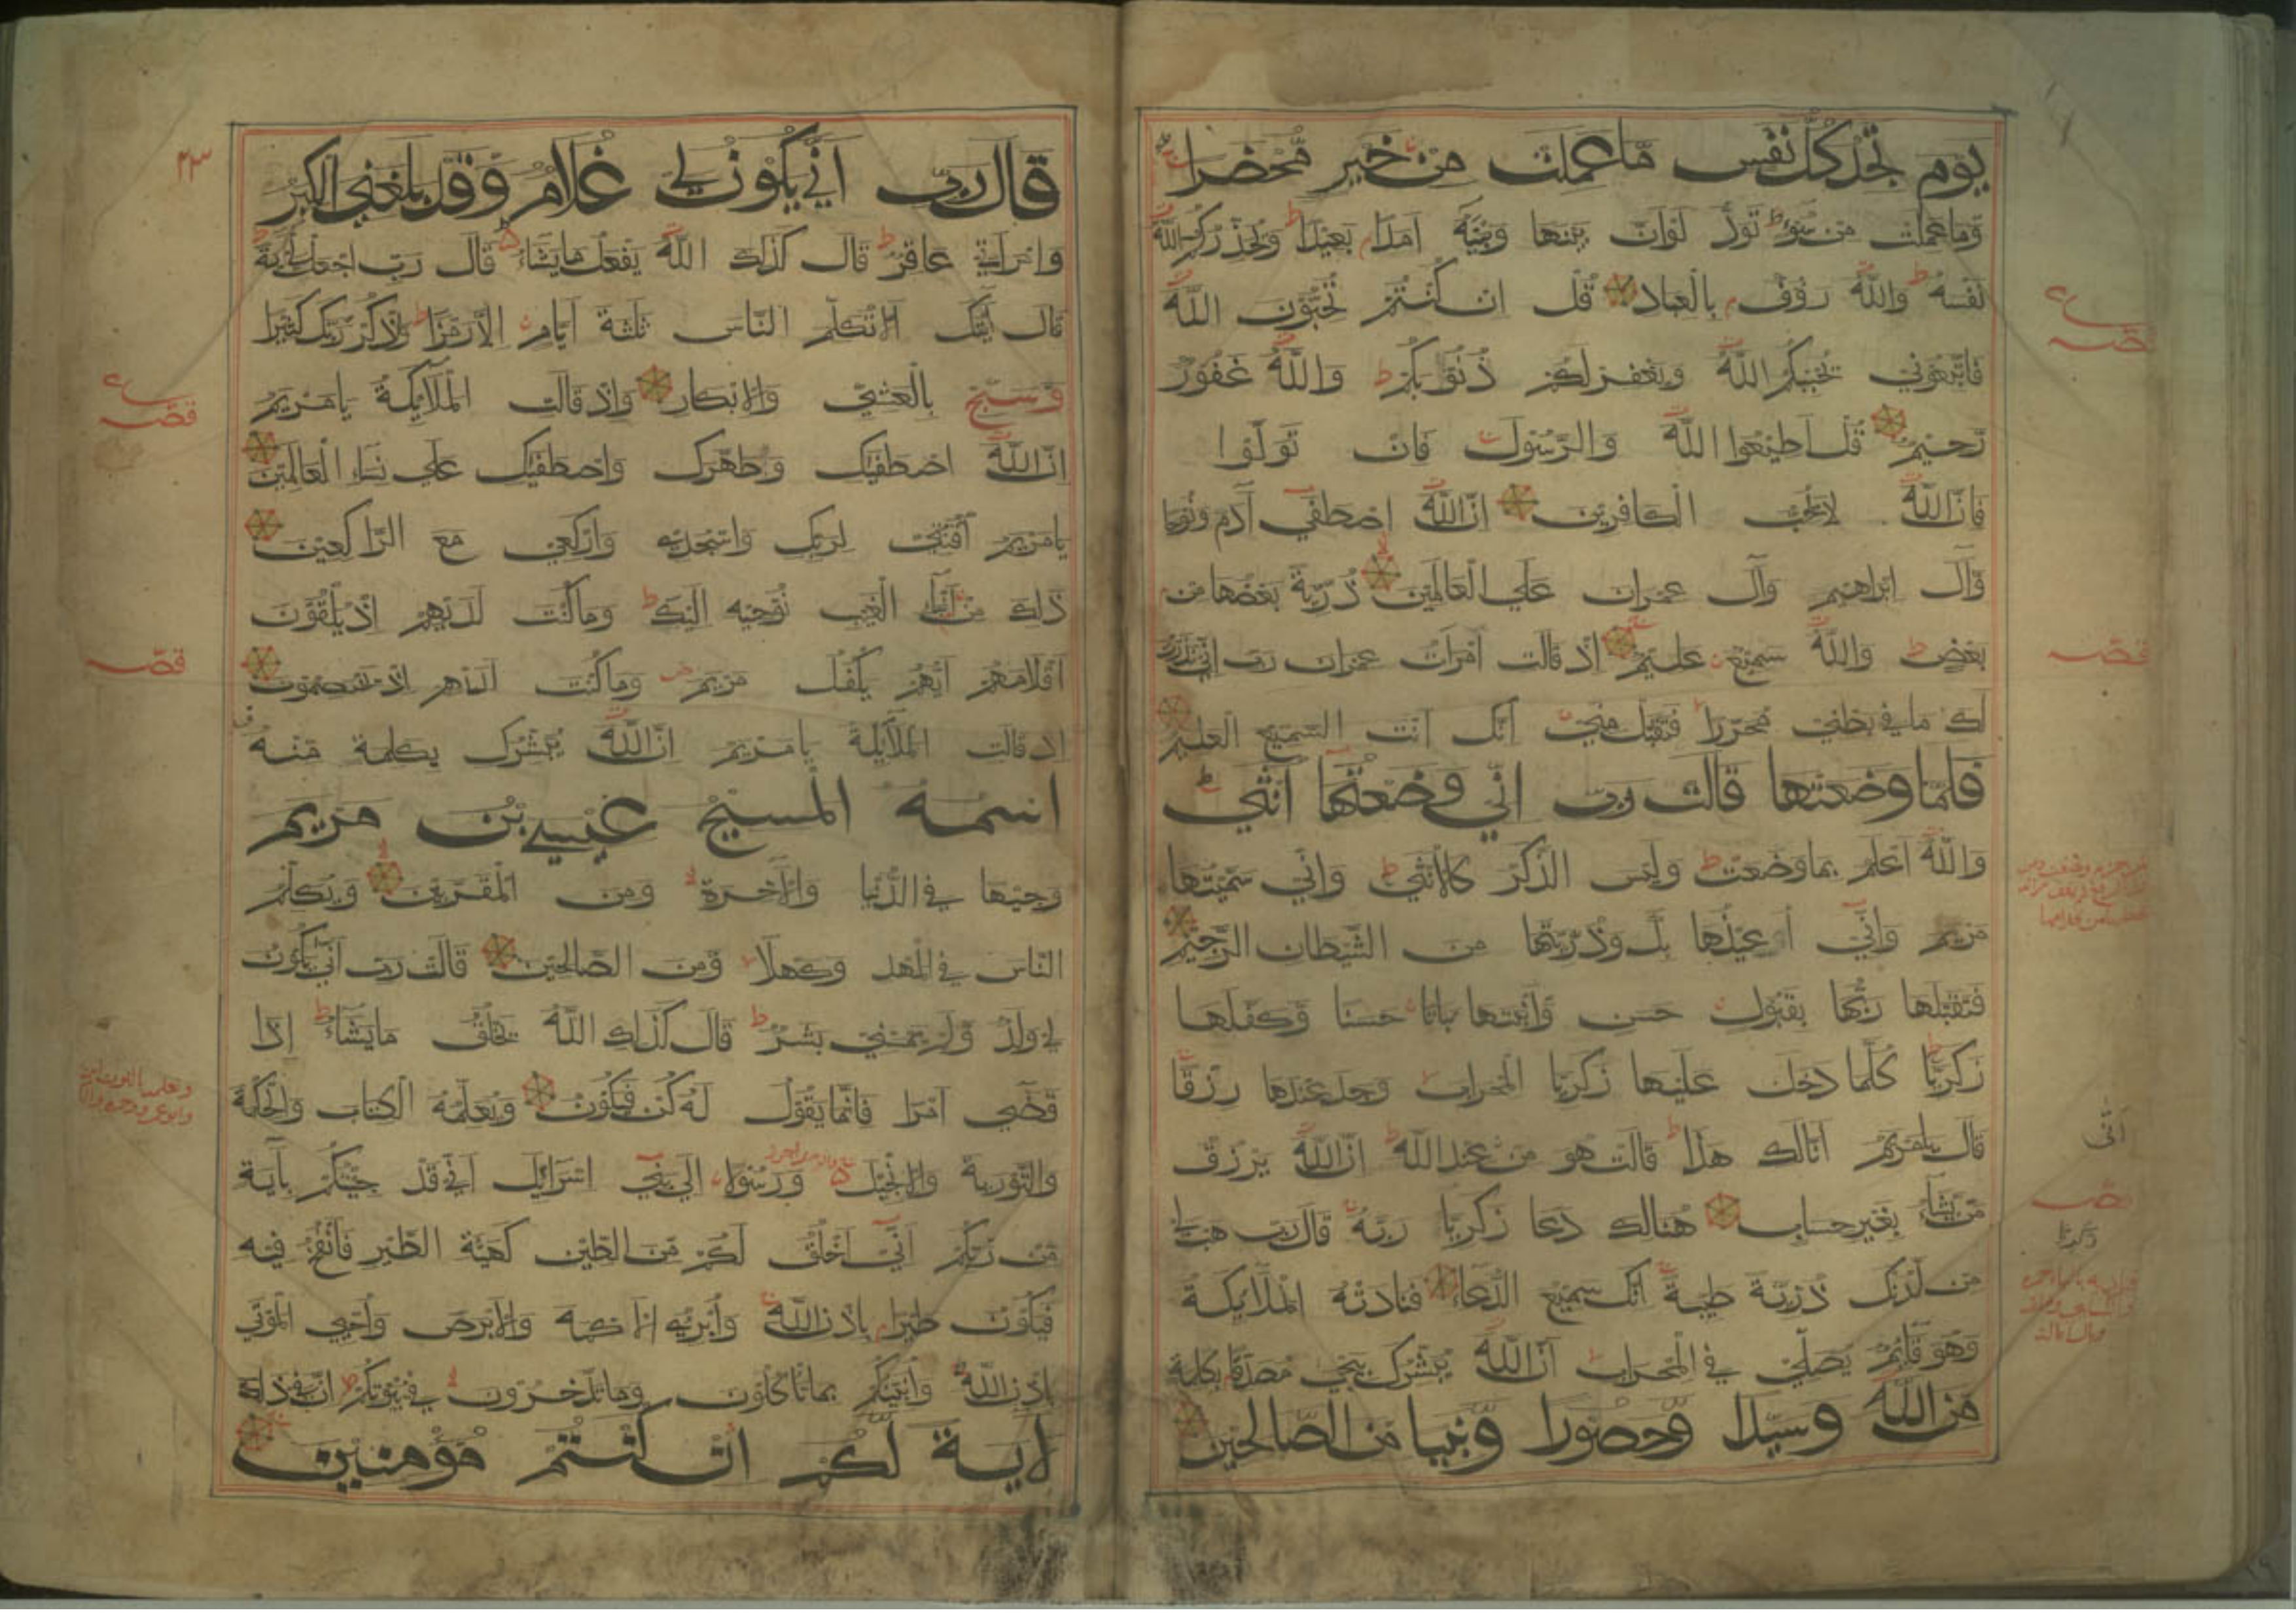 يوم تجد كل نفس ما عملت من خير محضرا
وما عملت من سوء تود لو ان بينها وبينه امدا بعيدا ويحذركم الله
نفسه والله رؤف بالعباد قل ان كنتم تحبون الله
فاتبعوني يحببكم الله ويغفر لكم ذنوبكم والله غفور
رحيم قل اطيعوا الله والرسول فان تولوا
فان الله لا يحب الكافرين ان الله اصطفى آدم ونوحا
وآل ابراهيم وآل عمران على العالمين ذرية بعضها من
بعض والله سميع عليم اذ قالت امرات عمران رب اني نذرت
لك ما في بطني محررا فتقبل مني انك انت السميع العليم
فلما وضعتها قالت رب اني وضعتها انثى
والله اعلم بما وضعت وليس الذكر كالانثى واني سميتها
مريم واني اعيذها بك وذريتها من الشيطان الرجيم
فتقبلها ربها بقبول حسن وانبتها نباتا حسنا وكفلها
زكريا كلما دخل عليها زكريا المحراب وجد عندها رزقا
قال يامريم انا لك هذا قالت هو من عند الله ان الله يرزق
من يشاء بغير حساب هنالك دعا زكريا ربه قال رب هب لي
من لدنك ذرية طيبة انك سميع الدعاء فنادته الملائكة
وهو قائم يصلي في المحراب ان الله يبشرك بيحيى مصدقا بكلمة
من الله وسيدا وحصورا ونبيا من الصالحين
ع
قصه
قصه
انى
قصه
زكريا
٢٣
قال رب اني يكون لي غلام وقد بلغني الكبر
وامراتي عاقر قال كذلك الله يفعل ما يشاء قال رب اجعل لي آية
قال آيتك الا تكلم الناس ثلثة ايام الا رمزا واذكر ربك كثيرا
وسبح بالعشي والابكار واذ قالت الملائكة يا مريم
ان الله اصطفيك وطهرك واصطفيك على نساء العالمين
يا مريم اقنتي لربك واسجدي واركعي مع الراكعين
ذلك من انباء الغيب نوحيه اليك وما كنت لديهم اذ يلقون
اقلامهم ايهم يكفل مريم وما كنت لديهم اذ يختصمون
اذ قالت الملائكة يا مريم ان الله يبشرك بكلمة منه
اسمه المسيح عيسى بن مريم
وجيها في الدنيا والآخرة ومن المقربين ويكلم
الناس في المهد وكهلا ومن الصالحين قالت رب انى يكون
لي ولد ولم يمسسني بشر قال كذلك الله يخلق ما يشاء اذا
قضى امرا فانما يقول له كن فيكون ويعلمه الكتاب والحكمة
والتورية والانجيل ورسولا الى بني اسرائيل اني قد جئتكم بآية
من ربكم اني اخلق لكم من الطين كهيئة الطير فانفخ فيه
فيكون طيرا باذن الله وابرئ الاكمه والابرص واحيي الموتى
باذن الله وانبئكم بما تاكلون وما تدخرون في بيوتكم ان في ذلك
لاية لكم ان كنتم مؤمنين
ع
قصه
قصه